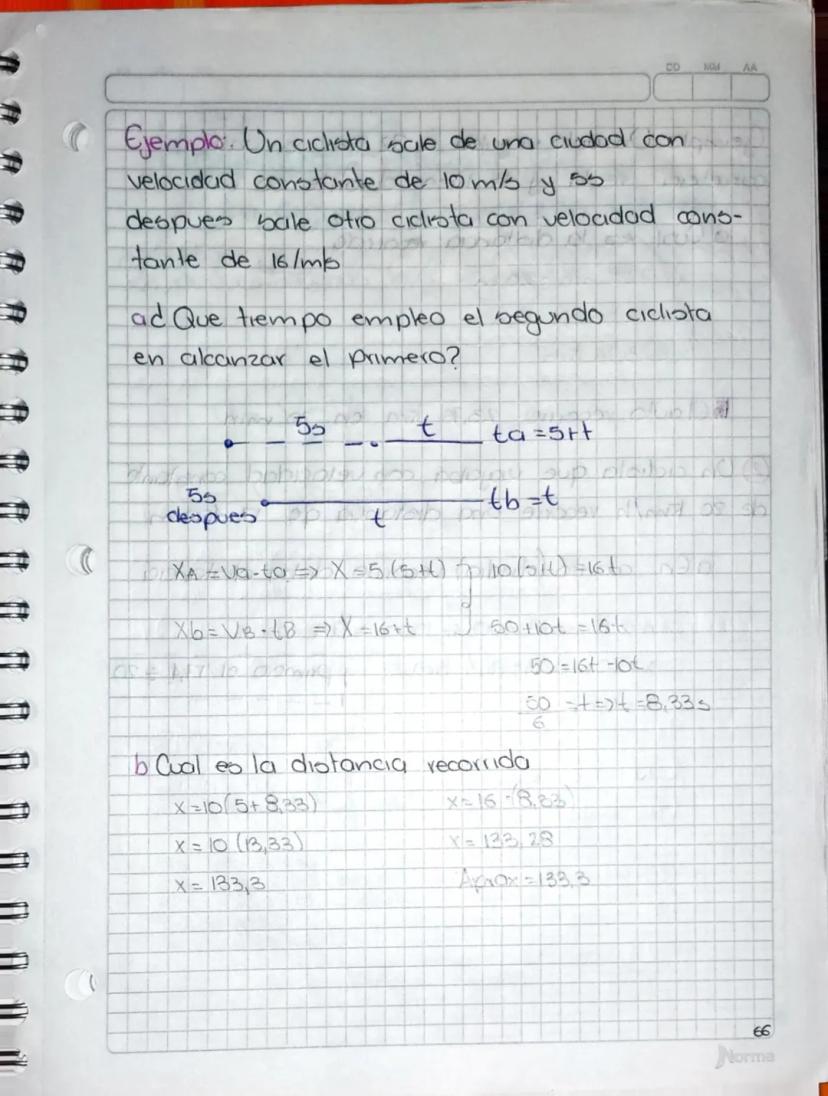 DD MM AA
Ejemplo: Un ciclista sale de una ciudad con
velocidad constante de 10 m/s y 5s
despues sale otro ciclista con velocidad cons-
tante de 16/m/s
a¿ Que tiempo empleo el segundo ciclista
en alcanzar el primero?
5s t ta = 5+t
5s
despues t tb = t
XA = Va-ta => X = 5(5+t) } 10(5+t) = 16t
Xb = VB · tB => X = 16+t 50+10t = 16t
50 = 16t - 10t
50/6 = t => t = 8,33s
b Cual es la distancia recorrida
x = 10(5 + 8,33) x = 16 · (8,33)
x = 10 (13,33) x = 133,28
x = 133,3 Aprox = 133,3
66
Norma